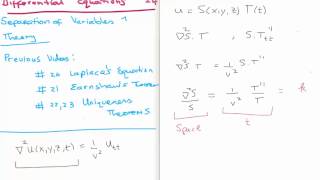 Differential Equations 24
Separation of Variables 1
Theory
Previous Videos:
# 20 Laplace's Equation
# 21 Earnshaw's Theorem
# 22,23 Uniqueness
Theorems
∇² u(x,y,z,t) = 1/v² u_tt
u = S(x,y,z) T(t)
∇²S. T , S. T''
∇²S. T = 1/v² S. T''
∇²S/S = 1/v² T''/T = k
Space t